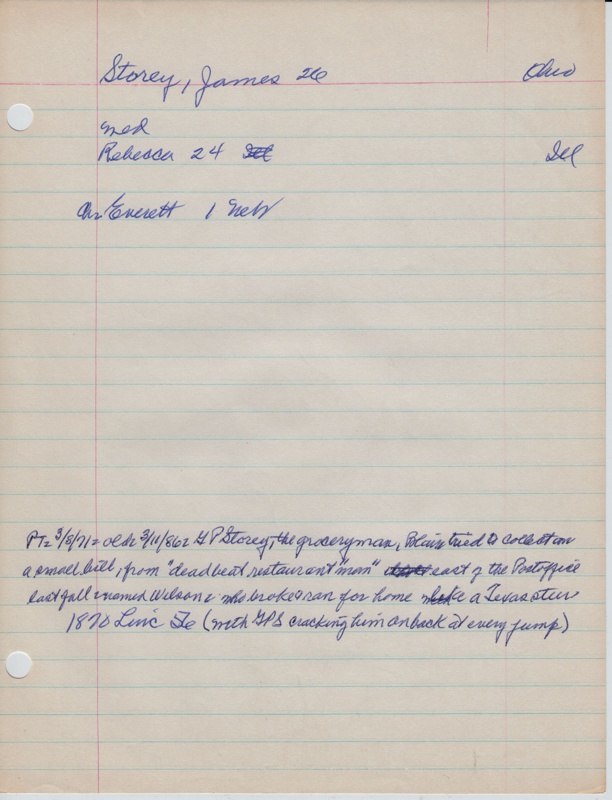 Storey, James 26 Ohio
med
Rebecca 24 Ill Ill
Chr Everett 1 Neb
PT= 3/8/71= 3/11/86= G P Storey, the groceryman, tried to collect on
a small bill, from "deadbeat restaurant "man" east of the Postoffice
last fall named Wilson who broke & ran for home like a Texas steer
1870 Linc Te (with GPS cracking him on back at every jump)